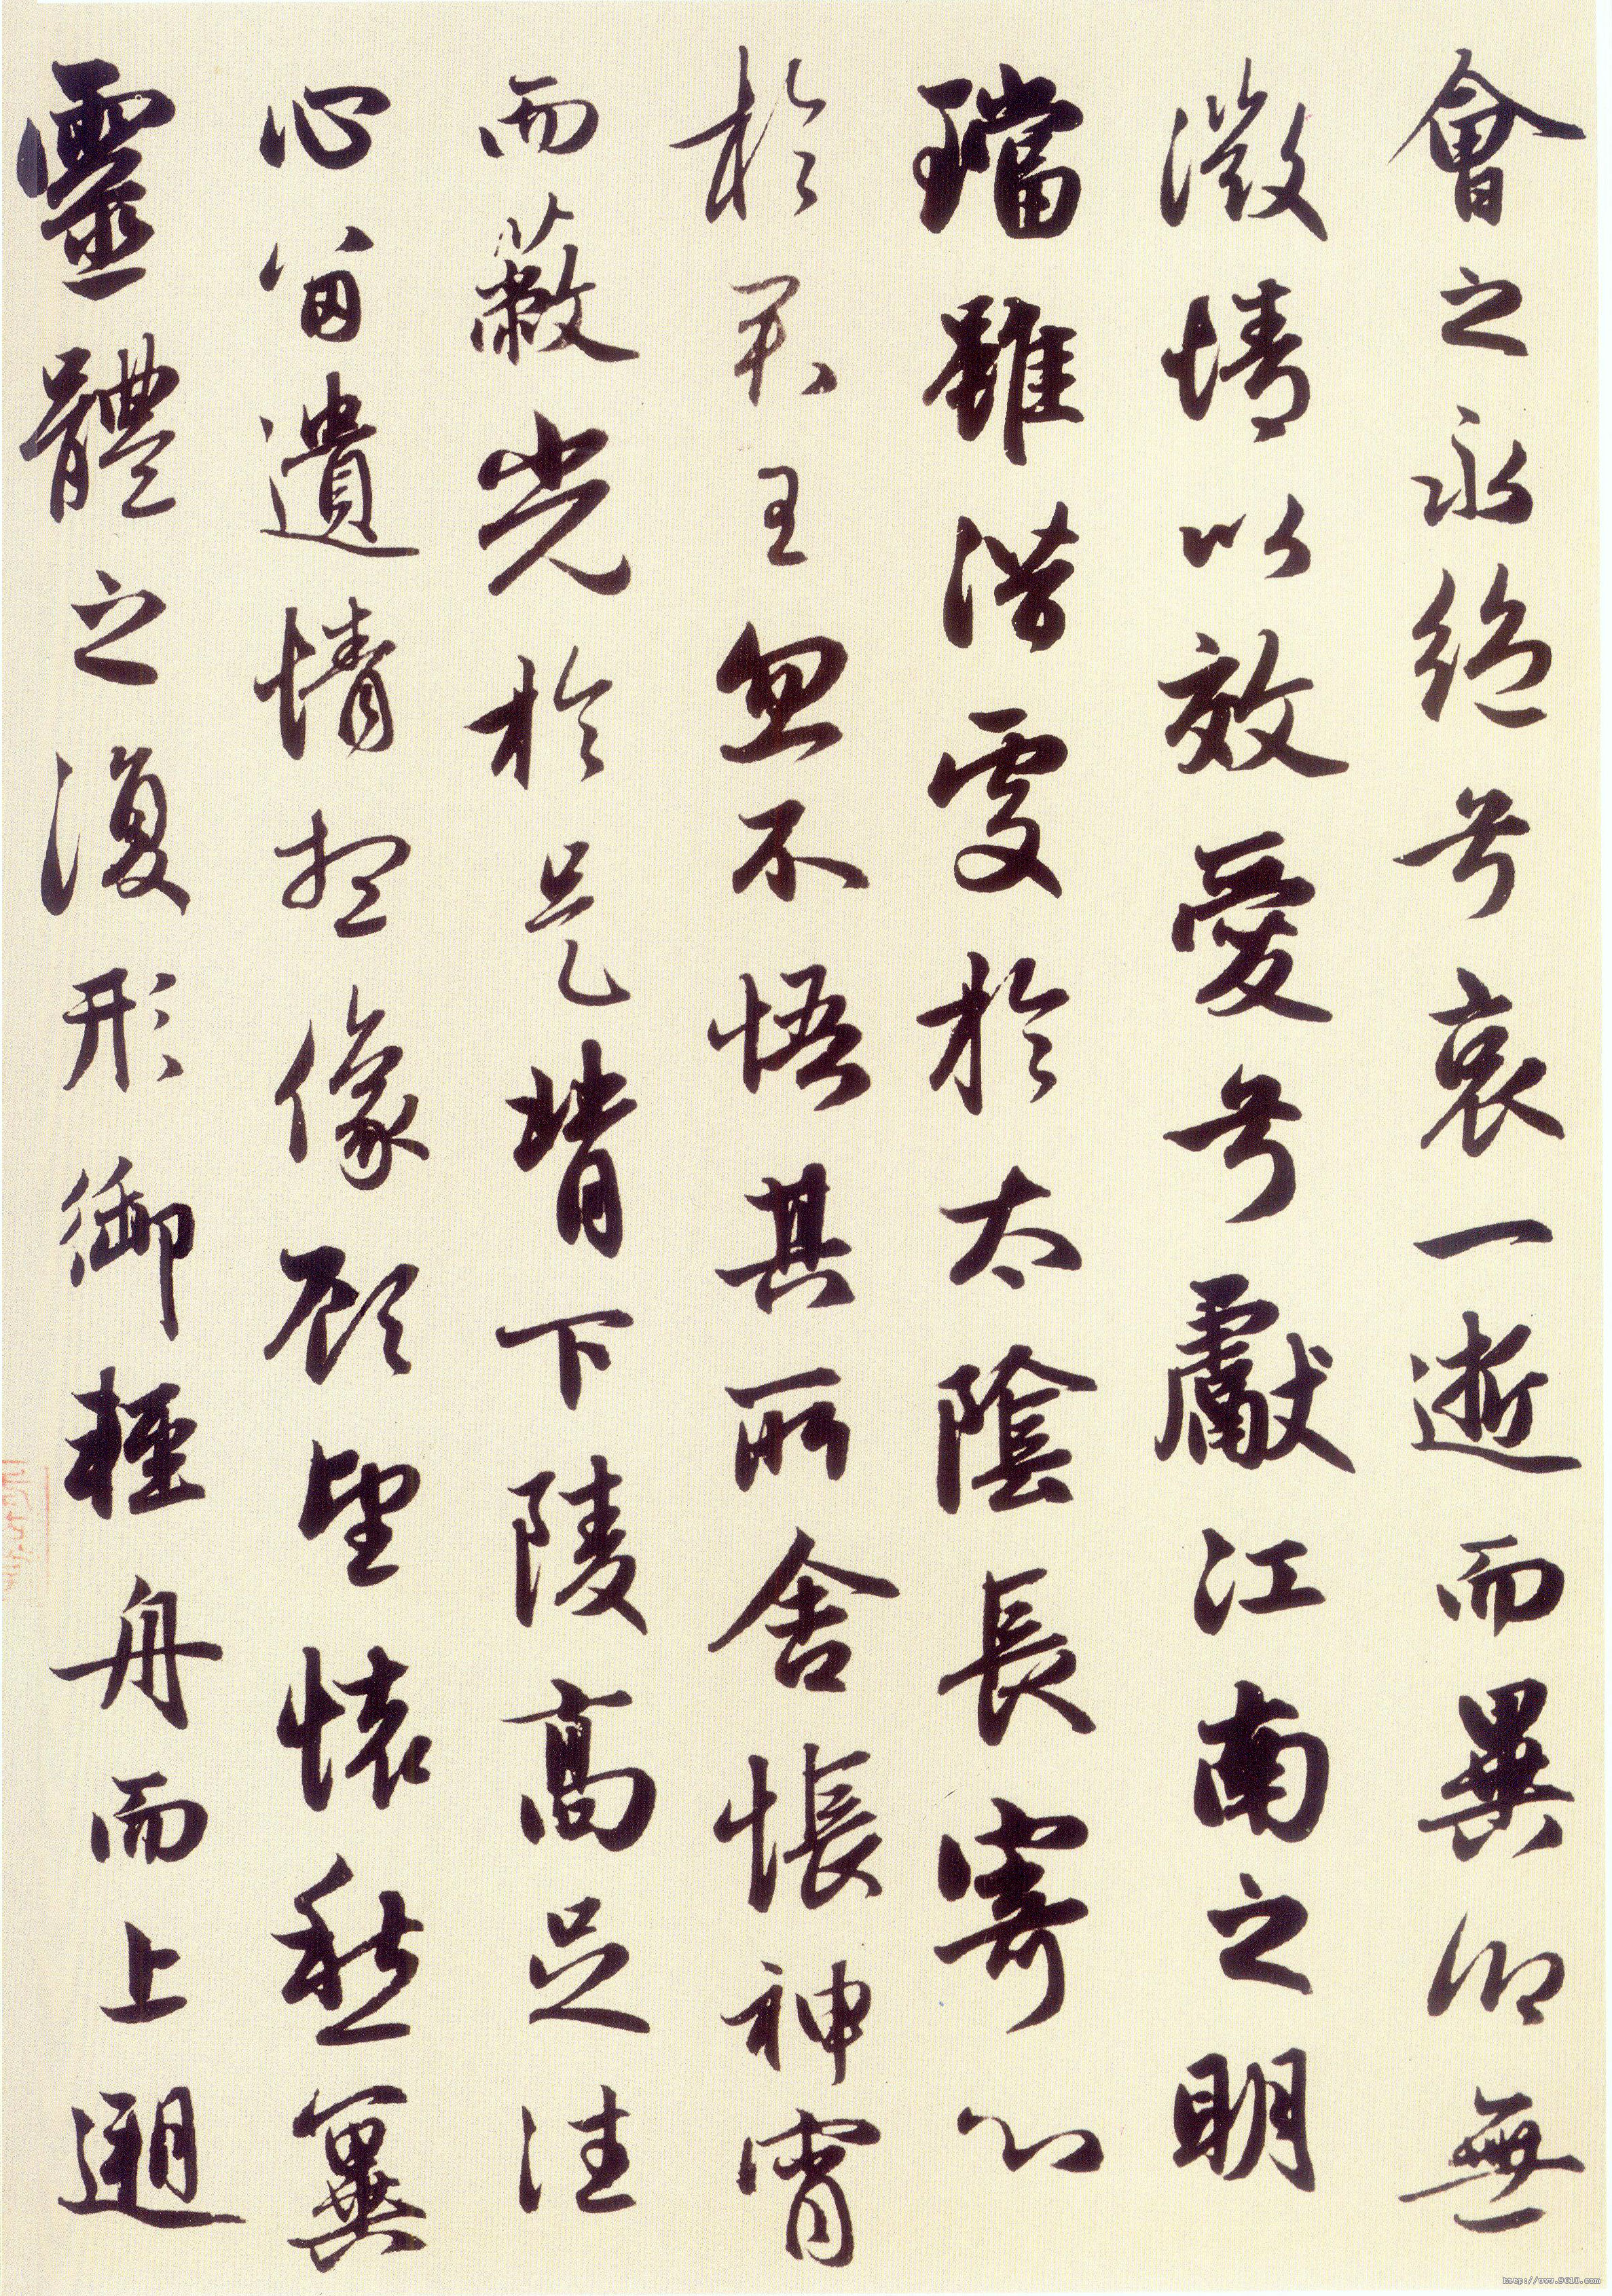 會之永絕兮哀一逝而異鄉無
微情以效愛兮獻江南之明
璫雖潛處於太陰長寄心
於君王忽不悟其所舍悵神宵
而蔽光於是背下陵高足往
心留遺情想像顧望懷愁冀
靈體之復形御輕舟而上遡
http://www.9610.com